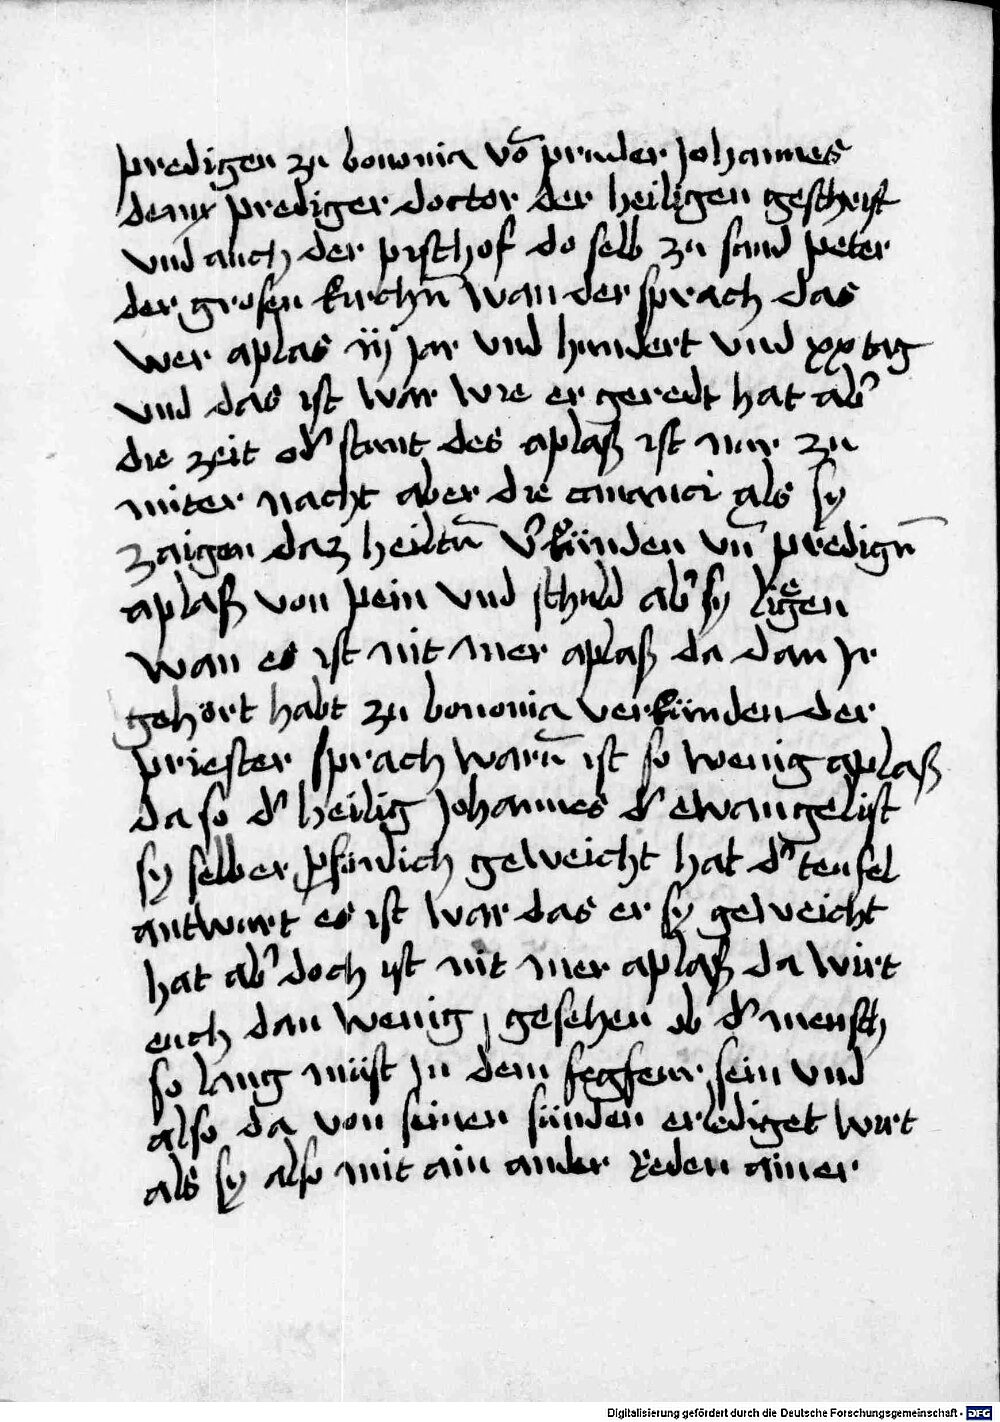 predigen zu bononia vō pruder Johannes
prediger doctor der heiligen geschrift
vnd auch der pischof do selb zu sand peter
der grosen kirchn̄ wan der sprach das
wer aplas iij jar vnd hundert vnd xx tag
vnd das ist war wie er geredt hat abˀ
die zeit odˀ stunt des aplaß ist nur zu
miter nacht aber die als sy
zaigen daz heiltū vˀkünden vn̄ predign̄
aplaß von pein vnd schuld abˀ sy ligen
wan es ist nit mer aplaß da dan Jr
gehört habt zu bononia verkünden der
priester sprach warū ist so wenig aplaß
da so dˀ heilig Johannes dˀ ewangelist
sy selber ꝑsönlich geweicht hat dˀ teufel
antwurt es ist war das er sy geweicht
hat abˀ doch ist nit mer aplaß da wirt
euch dan wenig gesehen ob dˀ mensch
so lang müst Jn dem fegfeur sein vnd
also da von seinen sünden erlediget wirt
als sy also mit ain ander reden ainer
Digitalisierung gefördert durch die Deutsche Forschungsgemeinschaft - DFG